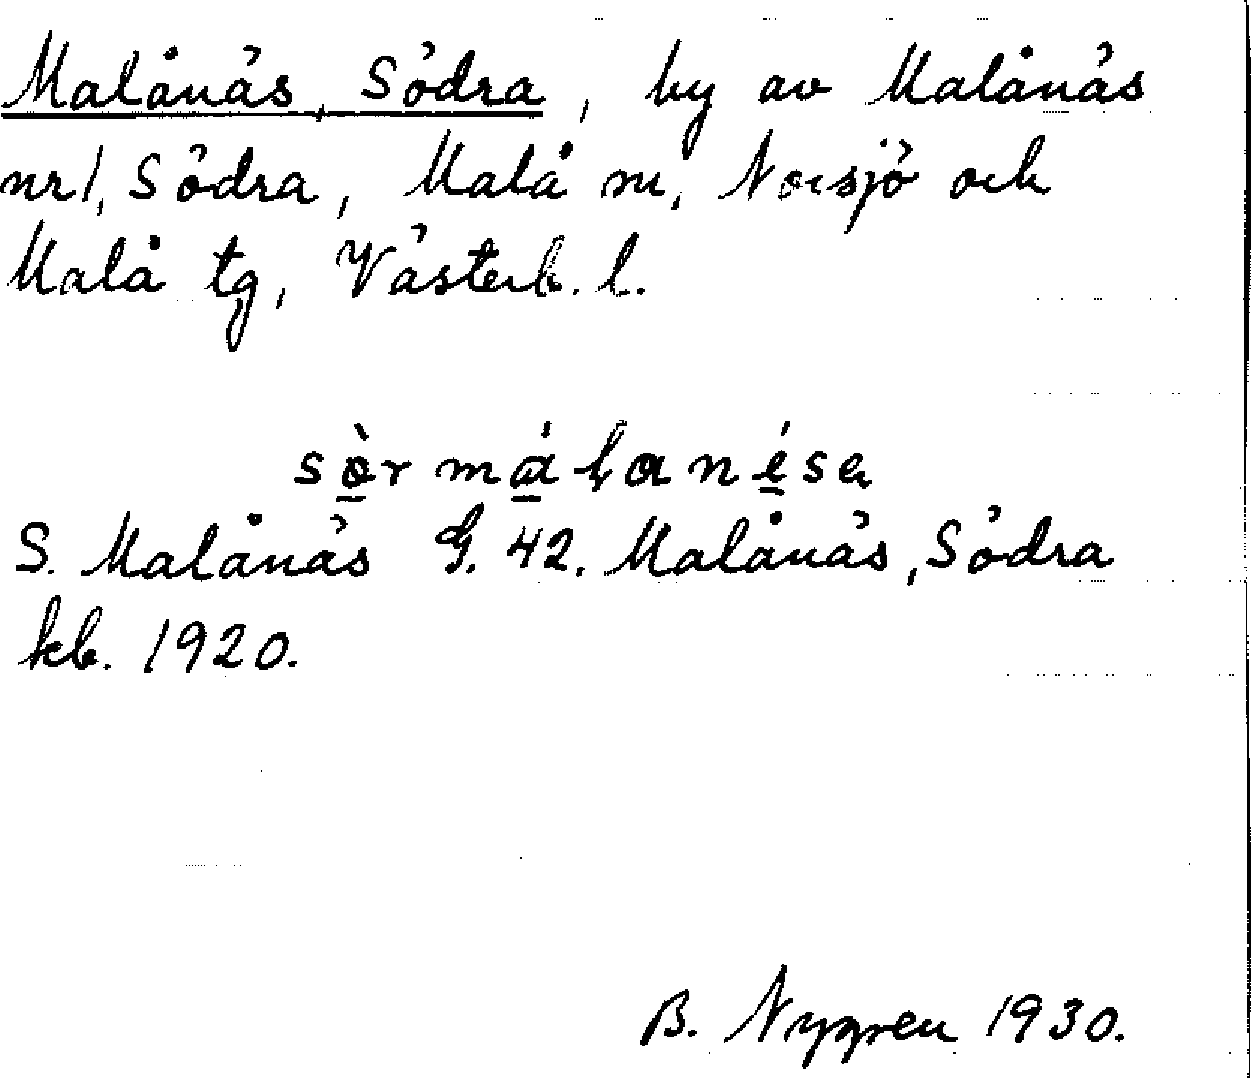 Malånäs, Södra, by av Malånäs
nr 1, Södra, Malå sn, Norsjö och
Malå tg, Västerb. l.
S. Malånäs G. 42. Malånäs, Södra
kb. 1920.
B. Nygren 1930.